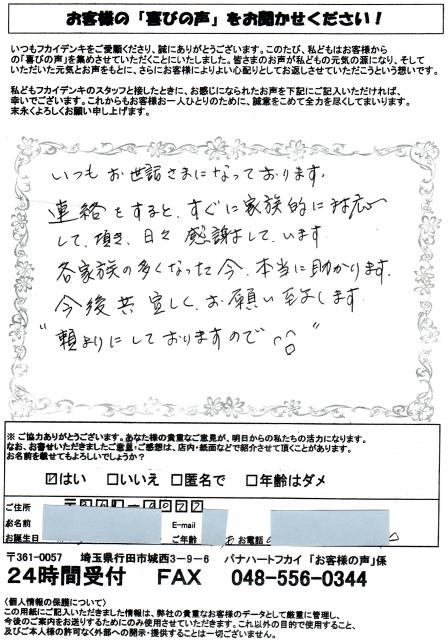 お客様の「喜びの声」をお聞かせください！
いつもフカイデンキをご愛顧くださり、誠にありがとうございます。このたび、私どもはお客様から
の「喜びの声」を集めさせていただくことにいたしました。皆さまのお声が私どもの元気の源になり、そして
いただいた元気とお声をもとに、さらにお客様によりよい心配りとしてお返しさせていただこうという想いです。
私どもフカイデンキのスタッフと接したときに、お感じになられたお声を下記にご記入いただければ、
幸いでございます。これからもお客様お一人ひとりのために、誠意をこめて全力を尽くしてまいります。
末永くよろしくお願い申し上げます。
いつもお世話さまになっております。
連絡をすると、すぐに家族的に対応
して頂き、日々感謝して、います。
各家族の多くなった今、本当に助かります。
今後共宜しく、お願い致します。
"頼よりにしておりますので"
※ご協力ありがとうございます。あなた様の貴重なご意見が、明日からの私たちの活力になります。
なお、お寄せいただきましたご意見・ご感想は、店内・紙面などで紹介させて頂くことがあります。
お名前を載せてもよろしいでしょうか？
☑はい □いいえ □匿名で □年齢はダメ
ご住所
お名前 E-mail
お誕生日 ご年齢 お電話
〒361-0057 埼玉県行田市城西3-9-6 パナハートフカイ 「お客様の声」係
24時間受付 FAX 048-556-0344
〈個人情報の保護について〉
この用紙にご記入いただきました情報は、弊社の貴重なお客様のデータとして厳重に管理し、
今後のご案内をお送りするためにのみ使用させていただきます。これ以外の目的で使用すること、
及びご本人様の許可なく外部への開示・提供することは一切ございません。